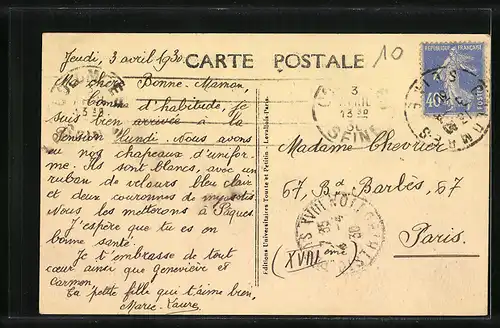 Jeudi, 3 avril 1930
CARTE POSTALE
10
Ma chère Bonne-Maman,
Comme d'habitude, je
suis bien arrivée à la
Pension lundi. Nous avons
eu nos chapeaux d'unifor-
me. Ils sont blancs, avec un
ruban de velours bleu clair
et deux couronnes de myosotis
Nous les mettrons à Pâques
J'espère que tu es en
bonne santé.
Je t'embrasse de tout
cœur ainsi que Geneviève et
Carmen.
Ta petite fille qui t'aime bien,
Marie-Laure
Editions Universitaires Tourte & Petitin, Levallois-Paris.
REPUBLIQUE FRANÇAISE
40c
3
13 30
SEINE
Madame Chevrier
67, Bd Barbès, 67
Paris.
(XVIIIème)
PARIS XVIII
30